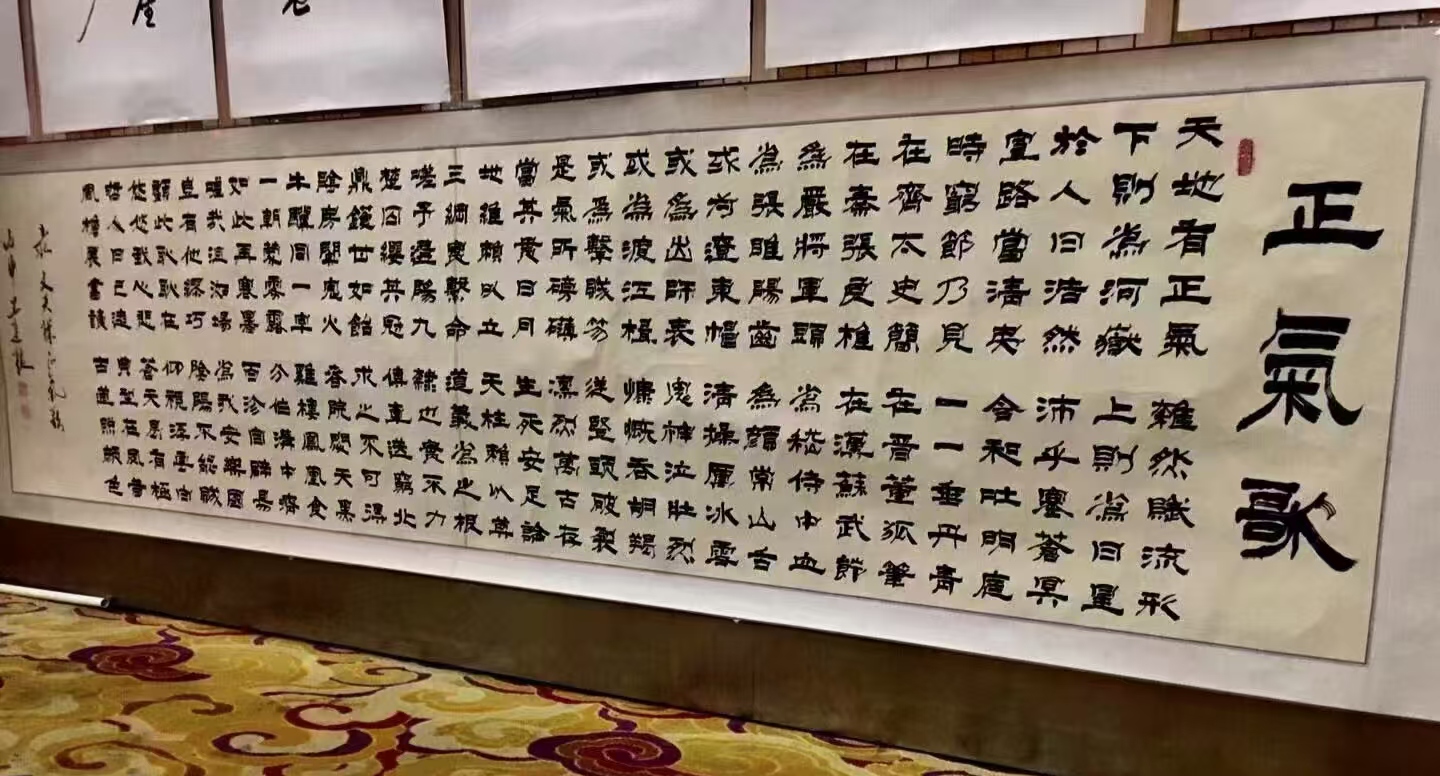 正氣歌
天地有正氣 雜然賦流形
下則為河嶽 上則為日星
於人曰浩然 沛乎塞蒼冥
皇路當清夷 含和吐明庭
時窮節乃見 一一垂丹青
在齊太史簡 在晉董狐筆
在秦張良椎 在漢蘇武節
為嚴將軍頭 為嵇侍中血
為張睢陽齒 為顏常山舌
或為遼東帽 清操厲冰雪
或為出師表 鬼神泣壯烈
或為渡江楫 慷慨吞胡羯
或為擊賊笏 逆豎頭破裂
是氣所磅礴 凜烈萬古存
當其貫日月 生死安足論
地維賴以立 天柱賴以尊
三綱實繫命 道義為之根
嗟予遘陽九 隸也實不力
楚囚纓其冠 傳車送窮北
鼎鑊甘如飴 求之不可得
陰房闃鬼火 春院閟天黑
牛驥同一皁 雞棲鳳凰食
一朝蒙霧露 分作溝中瘠
如此再寒暑 百沴自辟易
嗟哉沮洳場 為我安樂國
豈有他繆巧 陰陽不能賊
顧此耿耿在 仰視浮雲白
悠悠我心悲 蒼天曷有極
哲人日已遠 典型在夙昔
風檐展書讀 古道照顏色
文天祥正氣歌